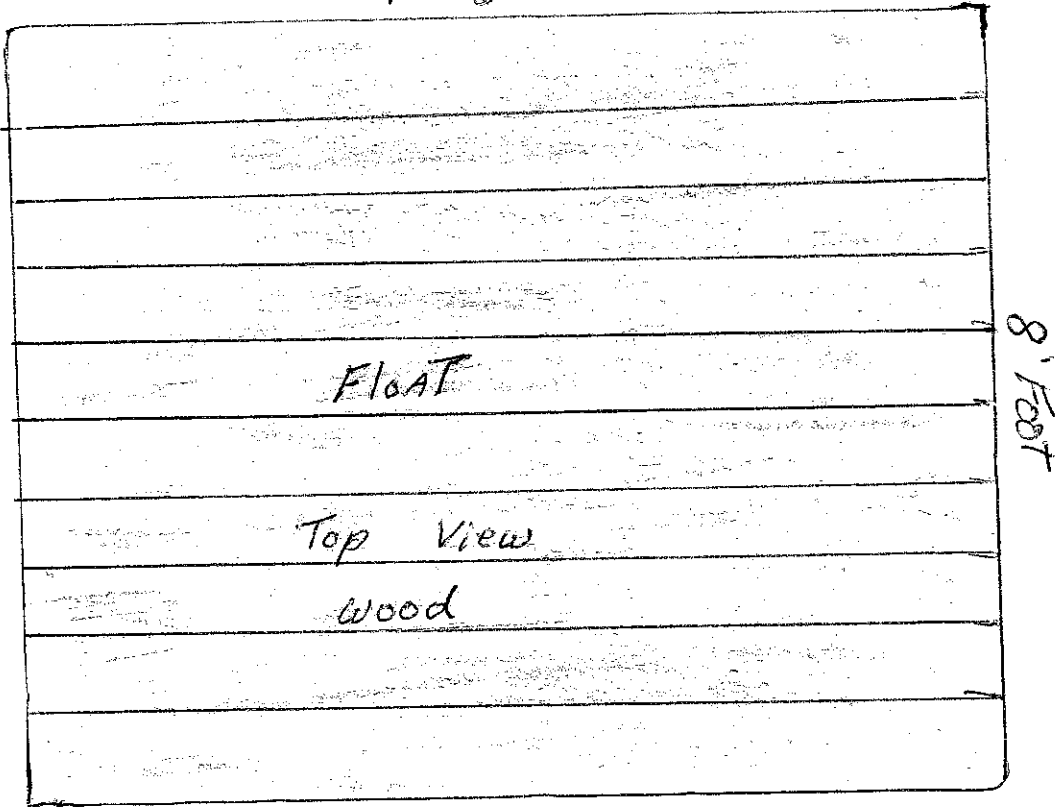 FloAT
Top View
wood
8' FooT